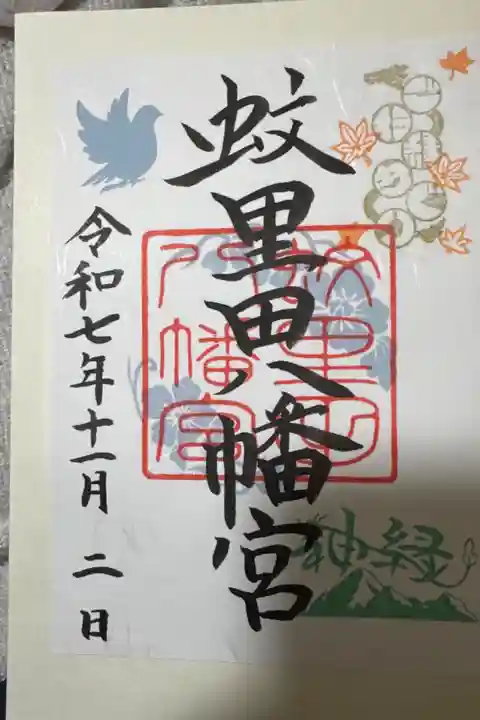 蚊里田八幡宮
蚊里田
八幡宮
令和七年十一月二日